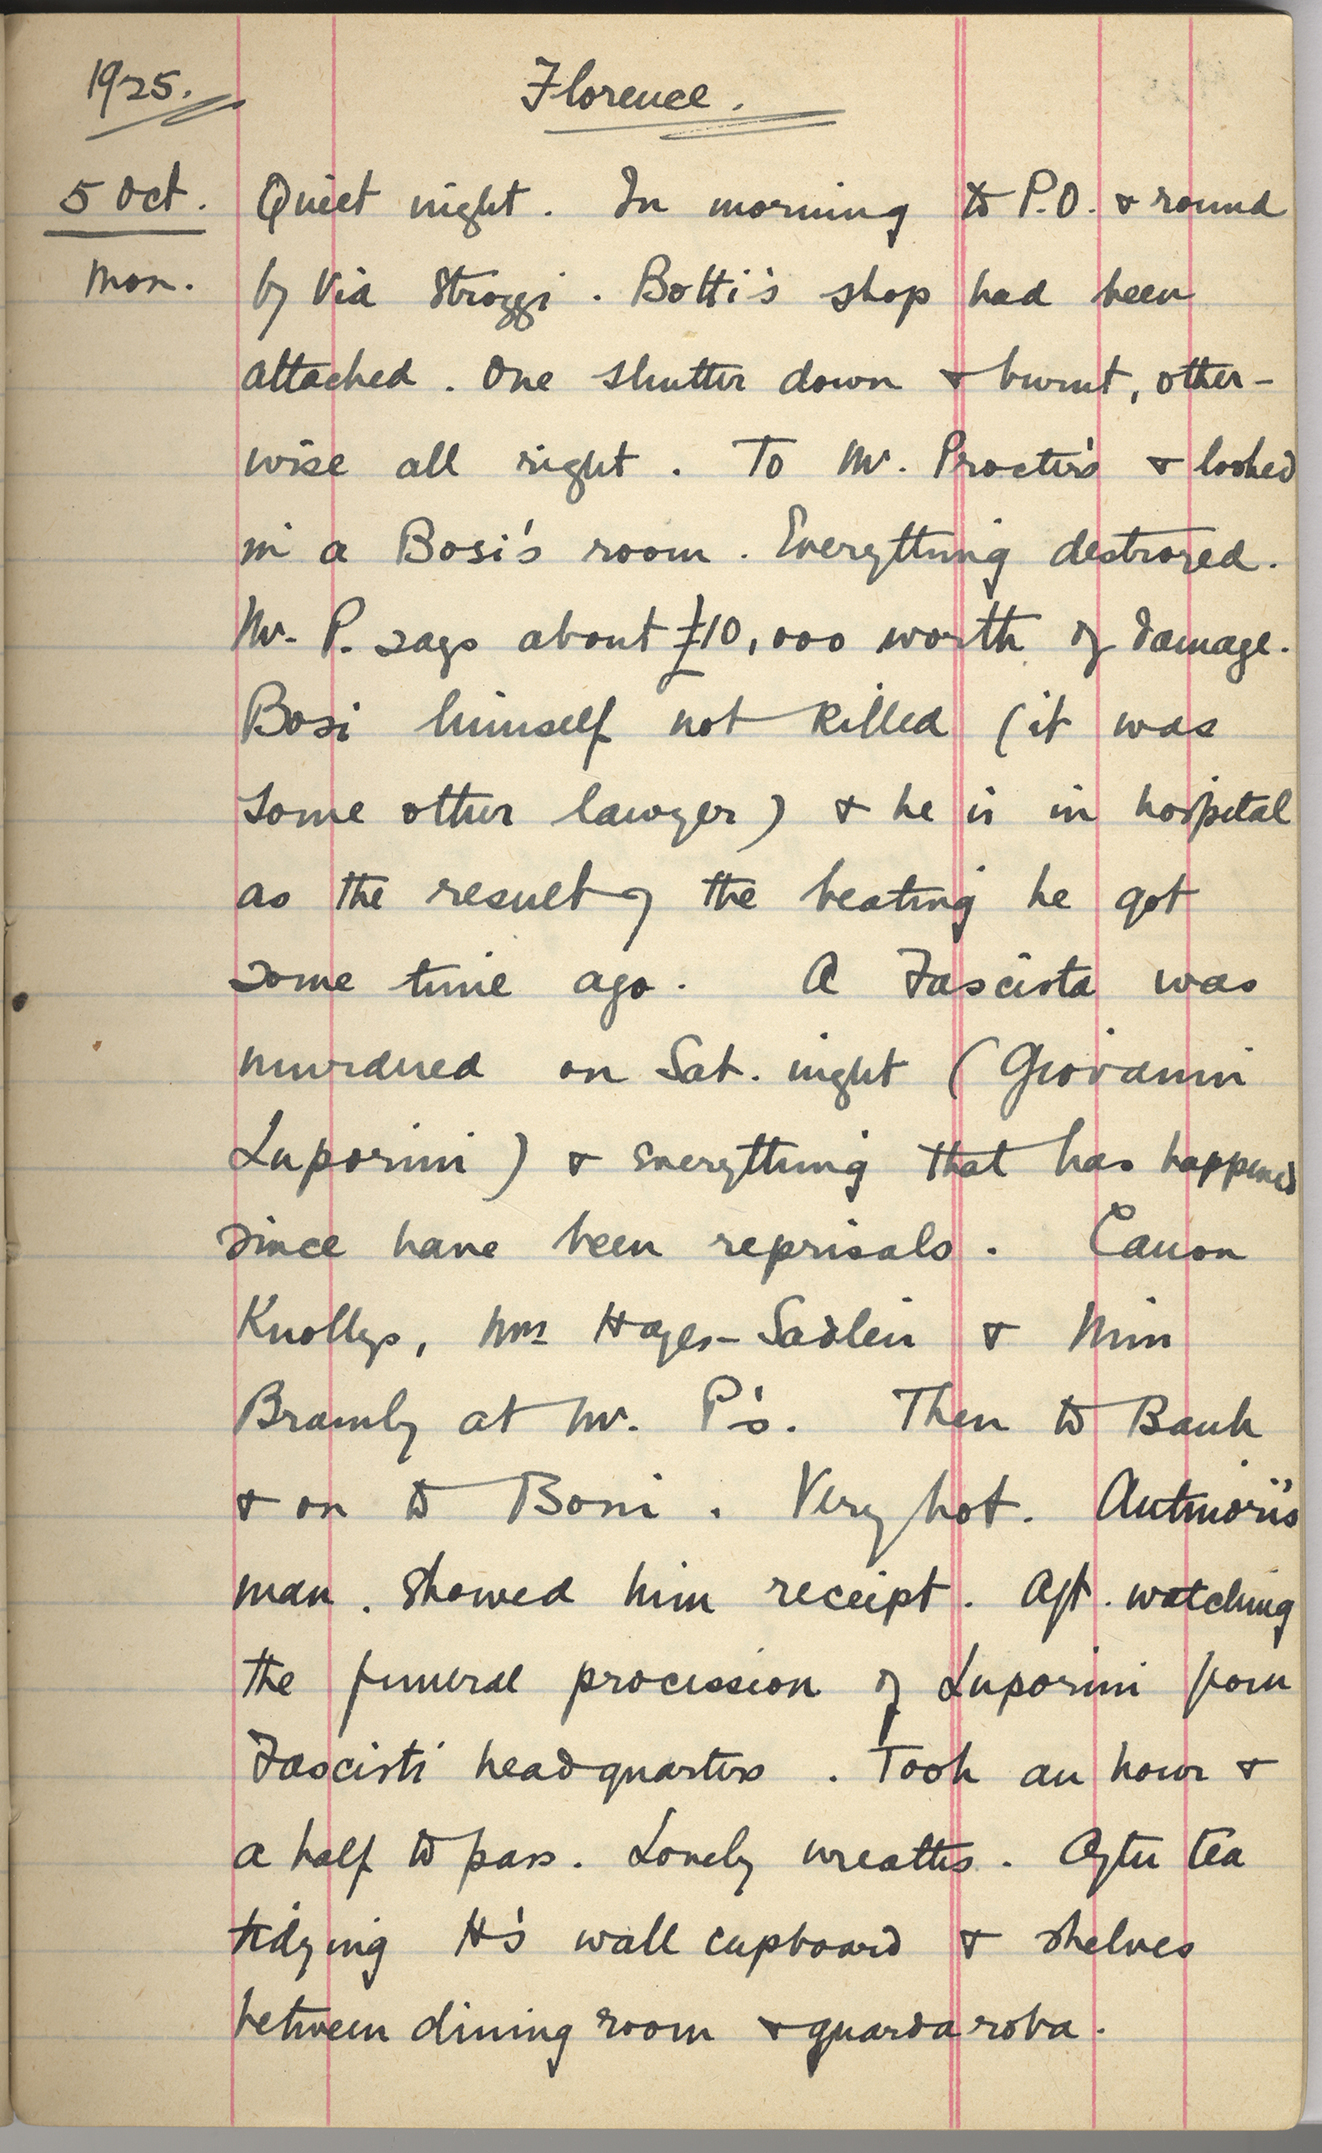 1925. Florence.
5 Oct. Quiet night. In morning to P.O. & round
Mon. by Via Strozzi. Botti's shop had been
attacked. One shutter down & burnt, other-
wise all right. To Mr. Procter's & looked
in a Bosi's room. Everything destroyed.
Mr. P. says about £10,000 worth of damage.
Bosi himself not killed (it was
some other lawyer) & he is in hospital
as the result of the beating he got
some time ago. A Fascista was
murdered on Sat. night (Giovanni
Luporini) & everything that has happened
since have been reprisals. Canon
Knollys, Mrs Hayes-Sadleir & Miss
Bramly at Mr. P's. Then to Bank
& on to Boni. Very hot.
man. Showed him receipt. Aft. watching
the funeral procession of Luporini from
Fascisti headquarters. Took an hour &
a half to pass. Lovely wreaths. After tea
tidying H's wall cupboard & shelves
between dining room & guardaroba.